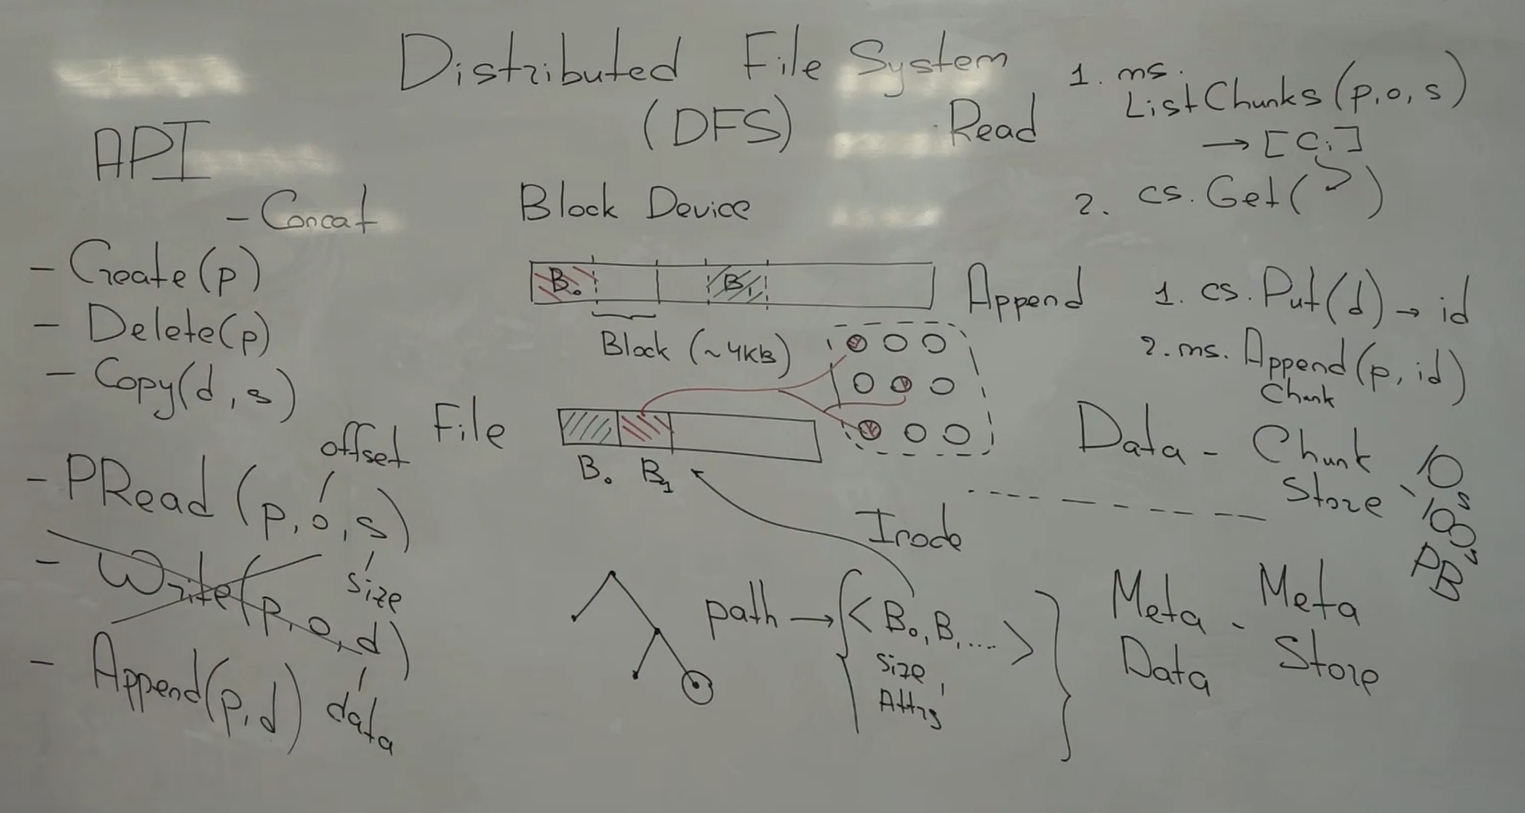 Distributed File System
(DFS)
API
- Concat
- Create(p)
- Delete(p)
- Copy(d, s)
offset
- PRead(p, o, s)
size
- Write(p, o, d)
- Append(p, d)
data
Block Device
B₀ B₁
Block (~4KB)
File
B₀ B₁
Inode
path → { < B₀, B₁ ... > }
size,
Attrs
Read
1. ms.
ListChunks(p, o, s)
→ [cᵢ]
2. cs. Get( )
Append
1. cs. Put(d) → id
2. ms. Append(p, id)
Chunk
Data - Chunk
Store
10s
100s
PB
Meta - Meta
Data Store